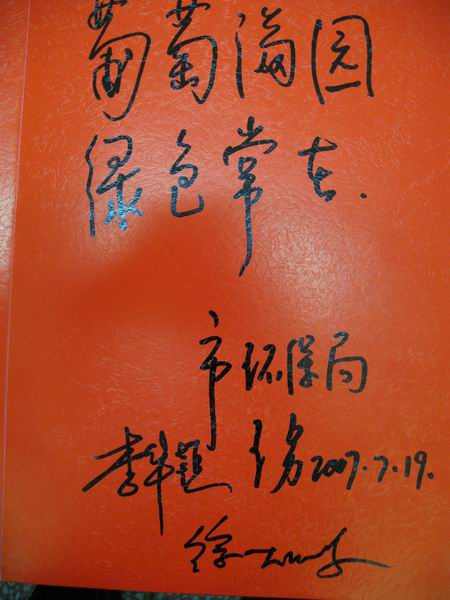 葡萄满园
绿色常在.
市环保局
李华题 2007.7.19.
徐